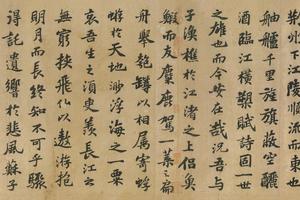 荆州下江陵順流而東也
舳艫千里旌旗蔽空釃
酒臨江橫槊賦詩固一世
之雄也而今安在哉況吾與
子漁樵於江渚之上侶魚
鰕而友麋鹿駕一葉之扁
舟舉匏罇以相屬寄蜉
蝣於天地渺浮海之一粟
哀吾生之須臾羨長江之
無窮挾飛仙以遨游抱
明月而長終知不可乎驟
得託遺響於悲風蘇子